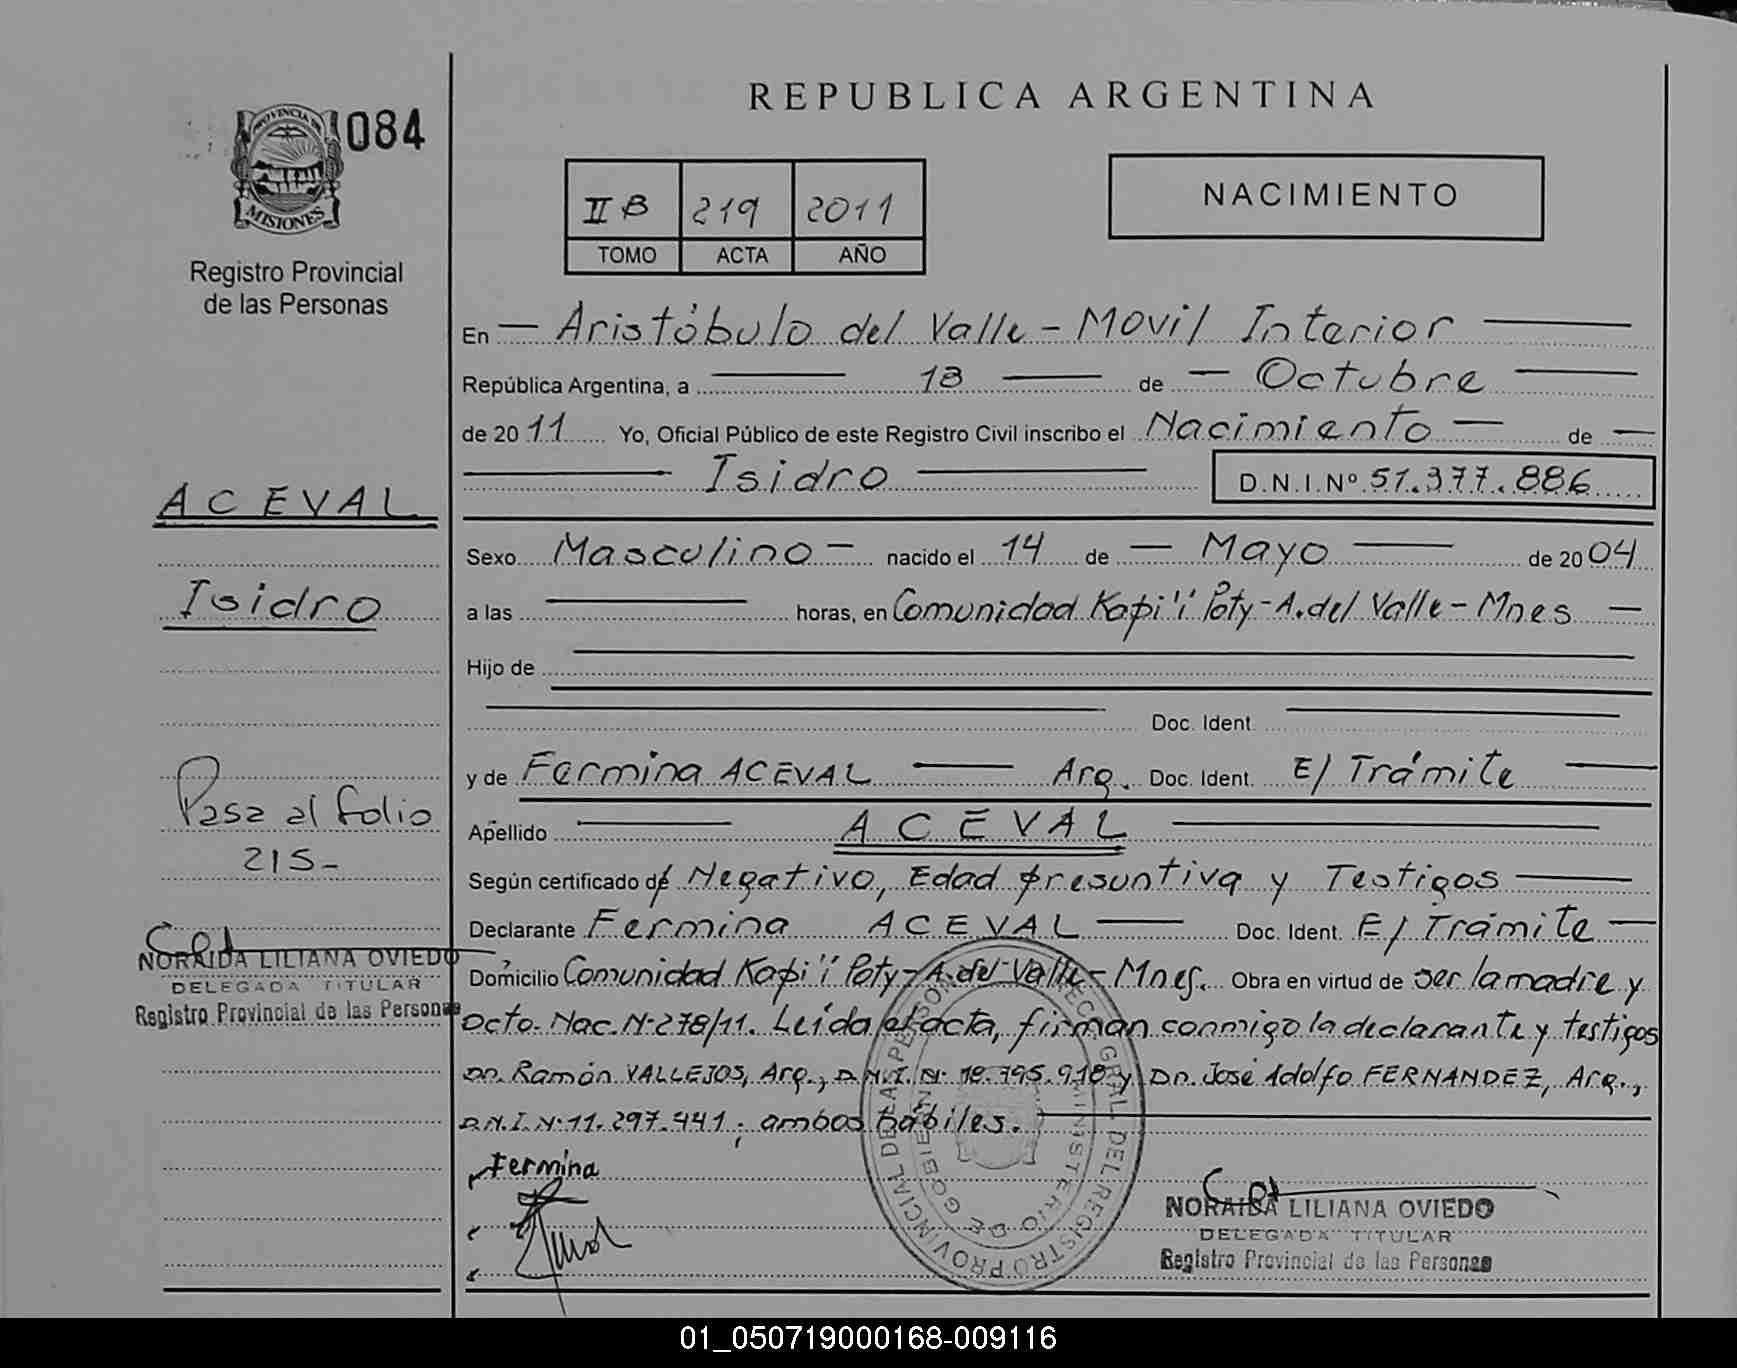 REPUBLICA ARGENTINA
PROVINCIA DE
MISIONES
084
Registro Provincial
de las Personas
II B 219 2011
TOMO ACTA AÑO
NACIMIENTO
En — Aristóbulo del Valle - Movil Interior —
República Argentina, a — 18 — de — Octubre —
de 2011 Yo, Oficial Público de este Registro Civil inscribo el Nacimiento — de —
— Isidro — D.N.I.Nº 51.377.886
Sexo Masculino — nacido el 14 de — Mayo — de 2004
a las — horas, en Comunidad Kapi'i Poty - A. del Valle - Mnes —
Hijo de —
— Doc. Ident. —
y de Fermina ACEVAL — Arg. Doc. Ident. E/ Trámite —
Apellido — ACEVAL —
Según certificado de Negativo, Edad presuntiva y Testigos —
Declarante Fermina ACEVAL — Doc. Ident. E/ Trámite —
Domicilio Comunidad Kapi'i Poty - A. del Valle - Mnes. Obra en virtud de ser la madre y
Dcto. Nac. Nº 278/11. Leída el acta, firman conmigo la declarante y testigos
Dn. Ramón VALLEJOS, Arg., D.N.I. Nº 18.795.918 y Dn. José Adolfo FERNANDEZ, Arg.,
D.N.I. Nº 11.297.441; ambos hábiles. —
Fermina
NORAIDA LILIANA OVIEDO
DELEGADA TITULAR
Registro Provincial de las Personas
DIRECC. GRAL. DEL REGISTRO PROVINCIAL DE LAS PERSONAS
MINISTERIO DE GOBIERNO
ACEVAL
Isidro
Pasa al folio
215-
NORAIDA LILIANA OVIEDO
DELEGADA TITULAR
Registro Provincial de las Personas
01_050719000168-009116